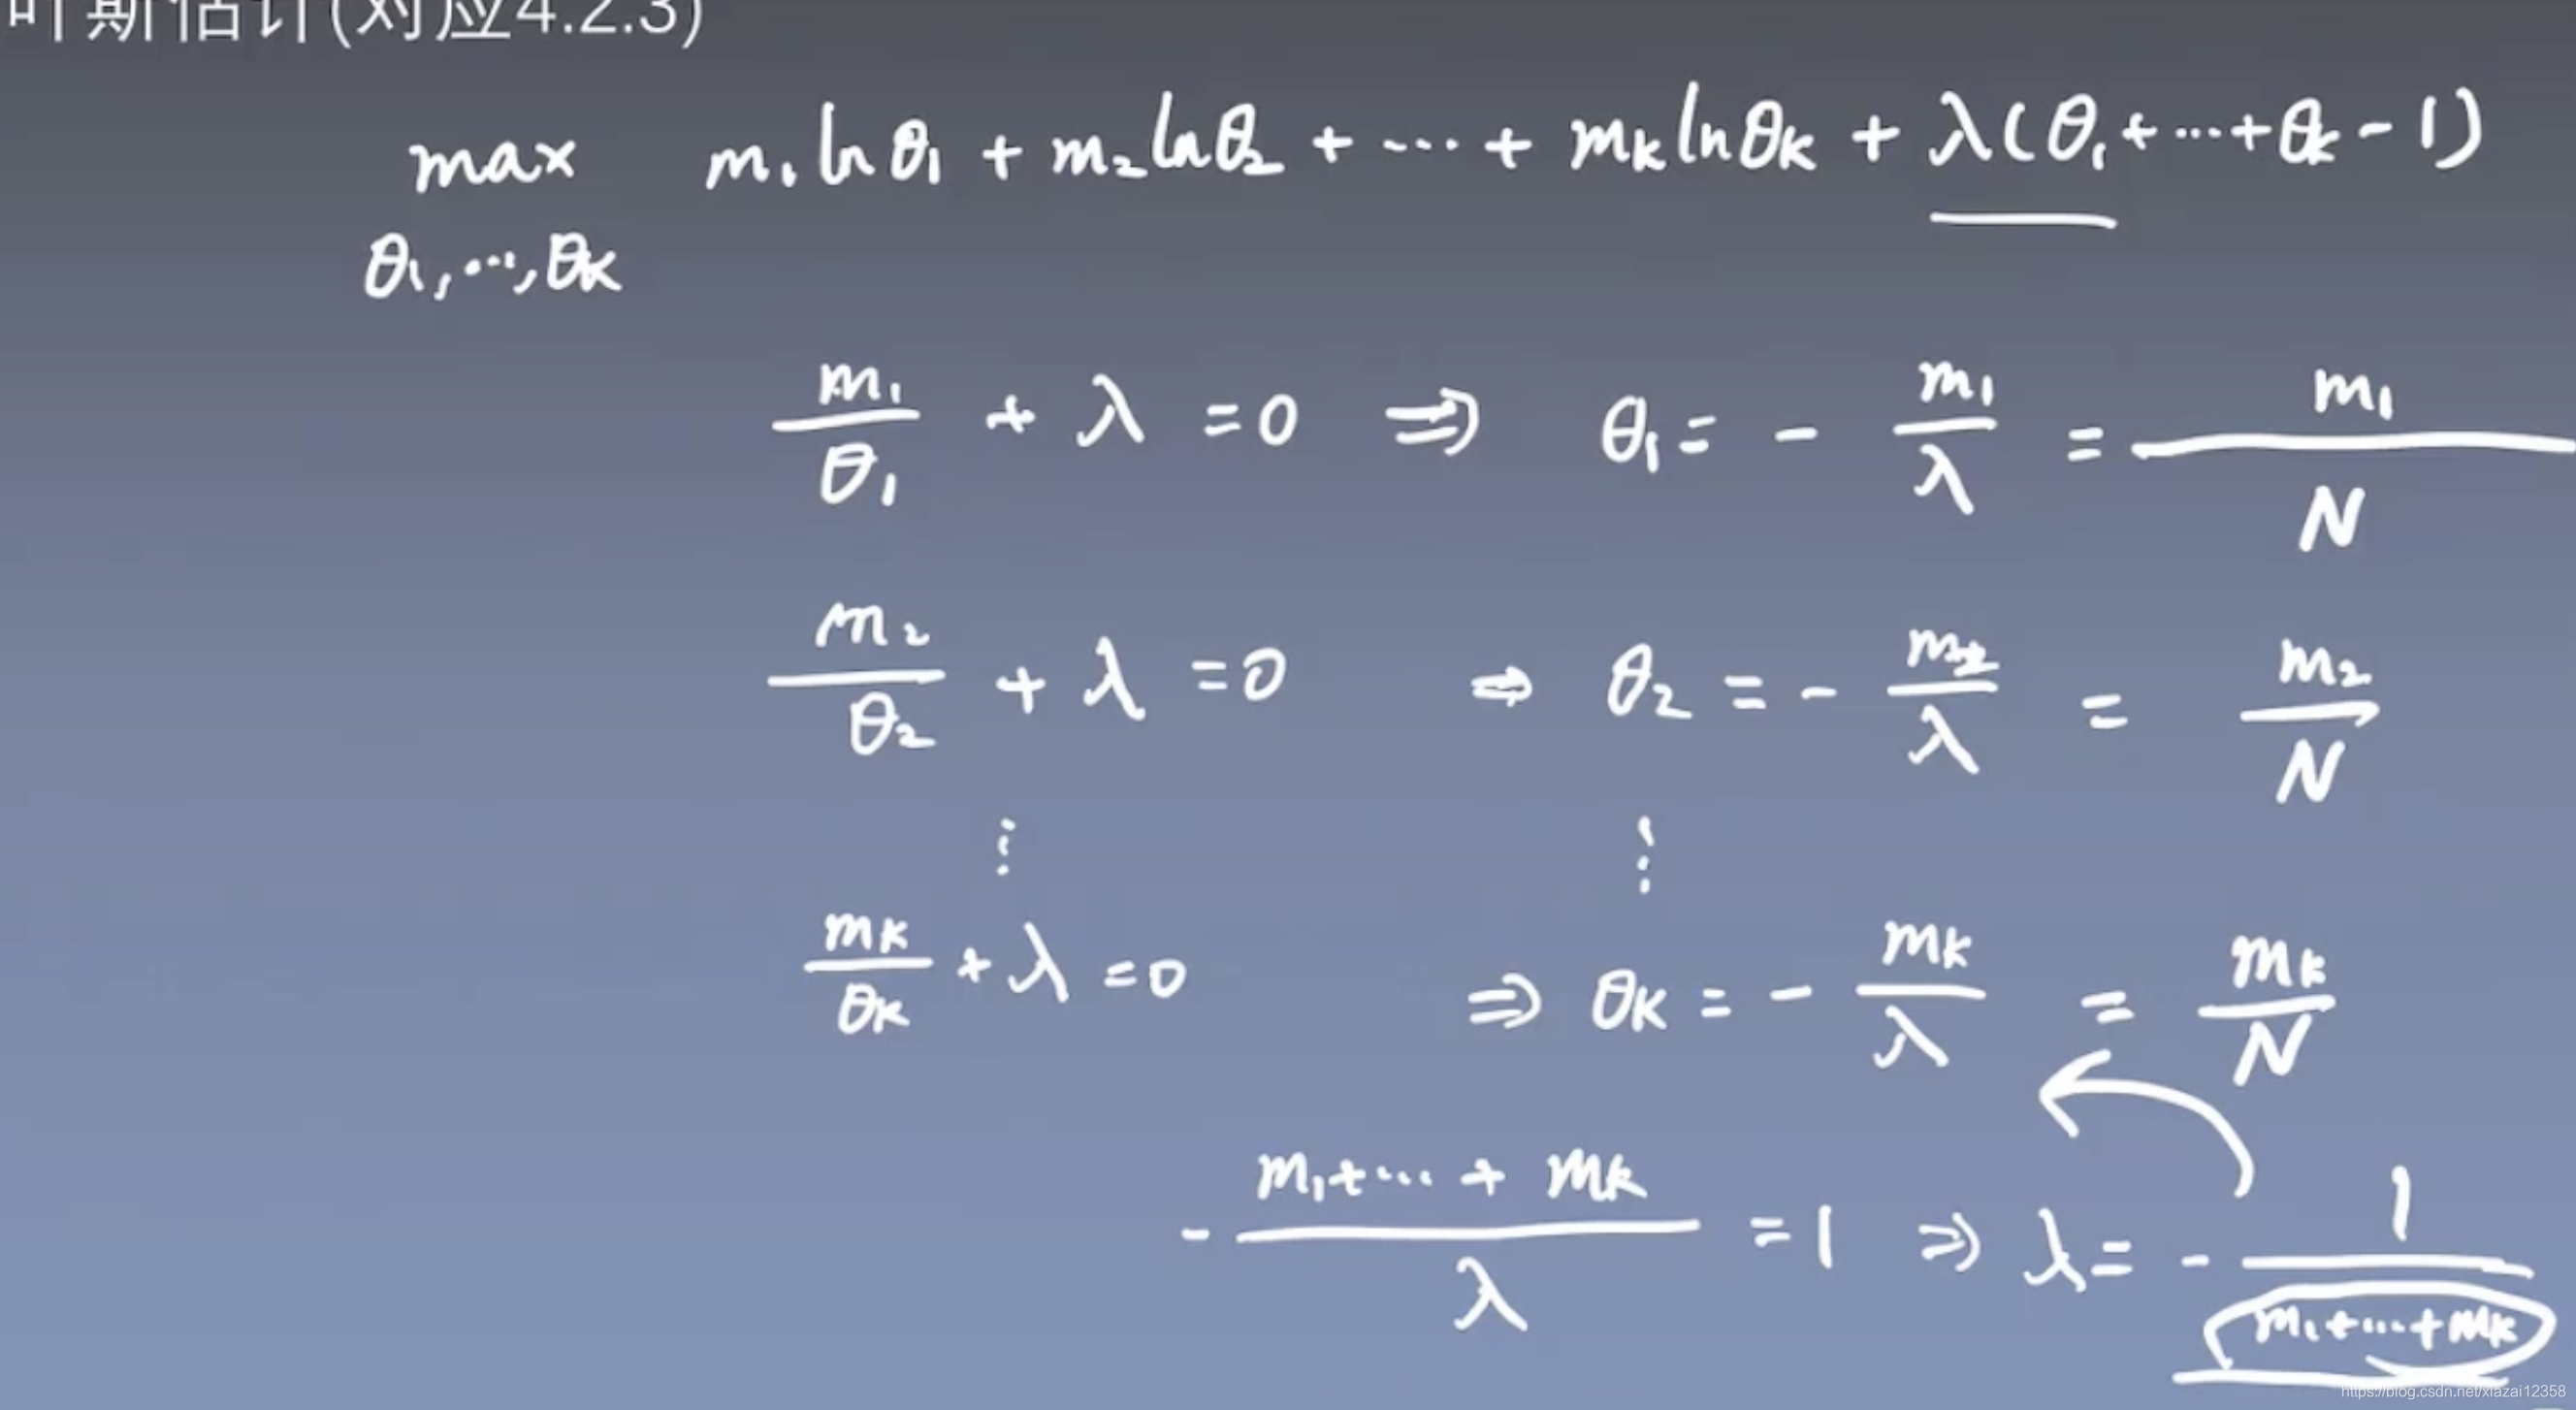 叶斯估计(对应4.2.3)
max m₁ ln θ₁ + m₂ ln θ₂ + ... + mₖ ln θₖ + λ(θ₁ + ... + θₖ - 1)
θ₁, ..., θₖ
m₁/θ₁ + λ = 0 ⇒ θ₁ = - m₁/λ = m₁/N
m₂/θ₂ + λ = 0 ⇒ θ₂ = - m₂/λ = m₂/N
⋮ ⋮
mₖ/θₖ + λ = 0 ⇒ θₖ = - mₖ/λ = mₖ/N
- (m₁ + ... + mₖ)/λ = 1 ⇒ λ = - 1/(m₁ + ... + mₖ)
https://blog.csdn.net/xiazai12358